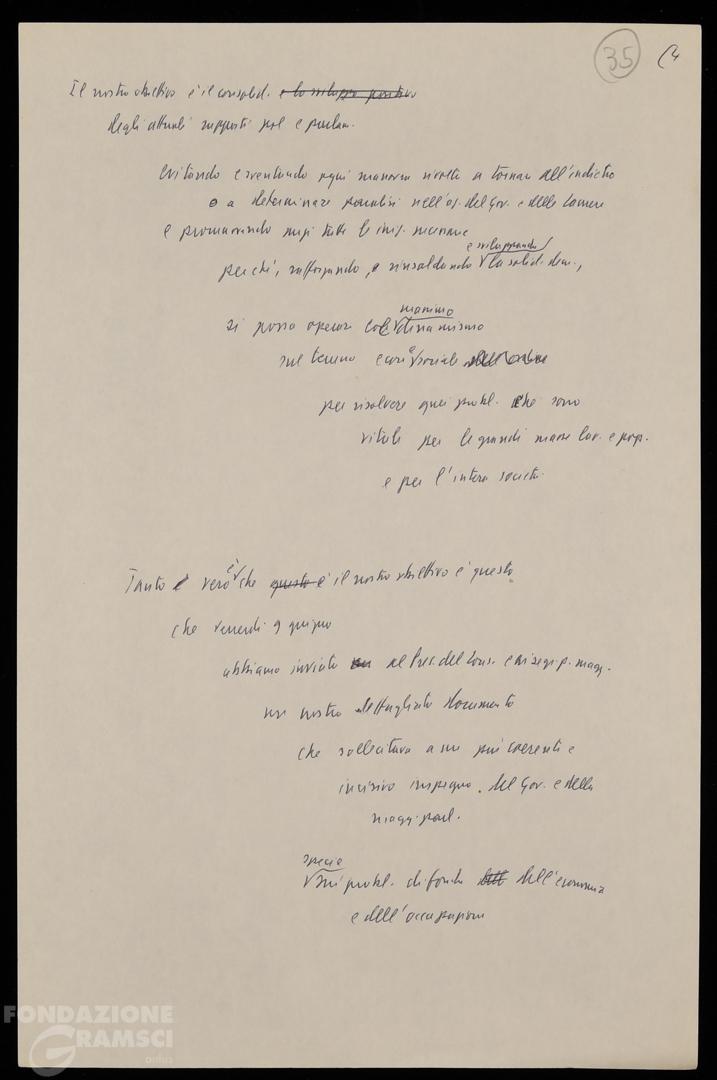 35 (4
Il nostro obiettivo è il consolid. e lo sviluppo positivo
degli attuali rapporti pol e parlam.
evitando e sventando ogni manovra rivolta a tornare all'indietro
o a determinare paralisi nell'op. del Gov. e delle Camere
e promuovendo tutte le iniz. necessarie
e sviluppando
perché, rafforzando, e rinsaldando la solid. dem.,
massimo
si possa operare col dinamismo
sul terreno econ e sociale
per risolvere quei probl. che sono
vitali per le grandi masse lav. e pop.
e per l'intera società.
Tanto è vero che questo è il nostro obiettivo è questo
che venerdì 9 giugno
abbiamo inviato al Pres. del Cons. e ai segr. p. magg.
un nostro dettagliato documento
che sollecitava a un più coerente e
incisivo impegno del Gov. e della
magg. parl.
specie
sui probl. di fondo dell'economia
e dell'occupazione
FONDAZIONE
GRAMSCI
onlus